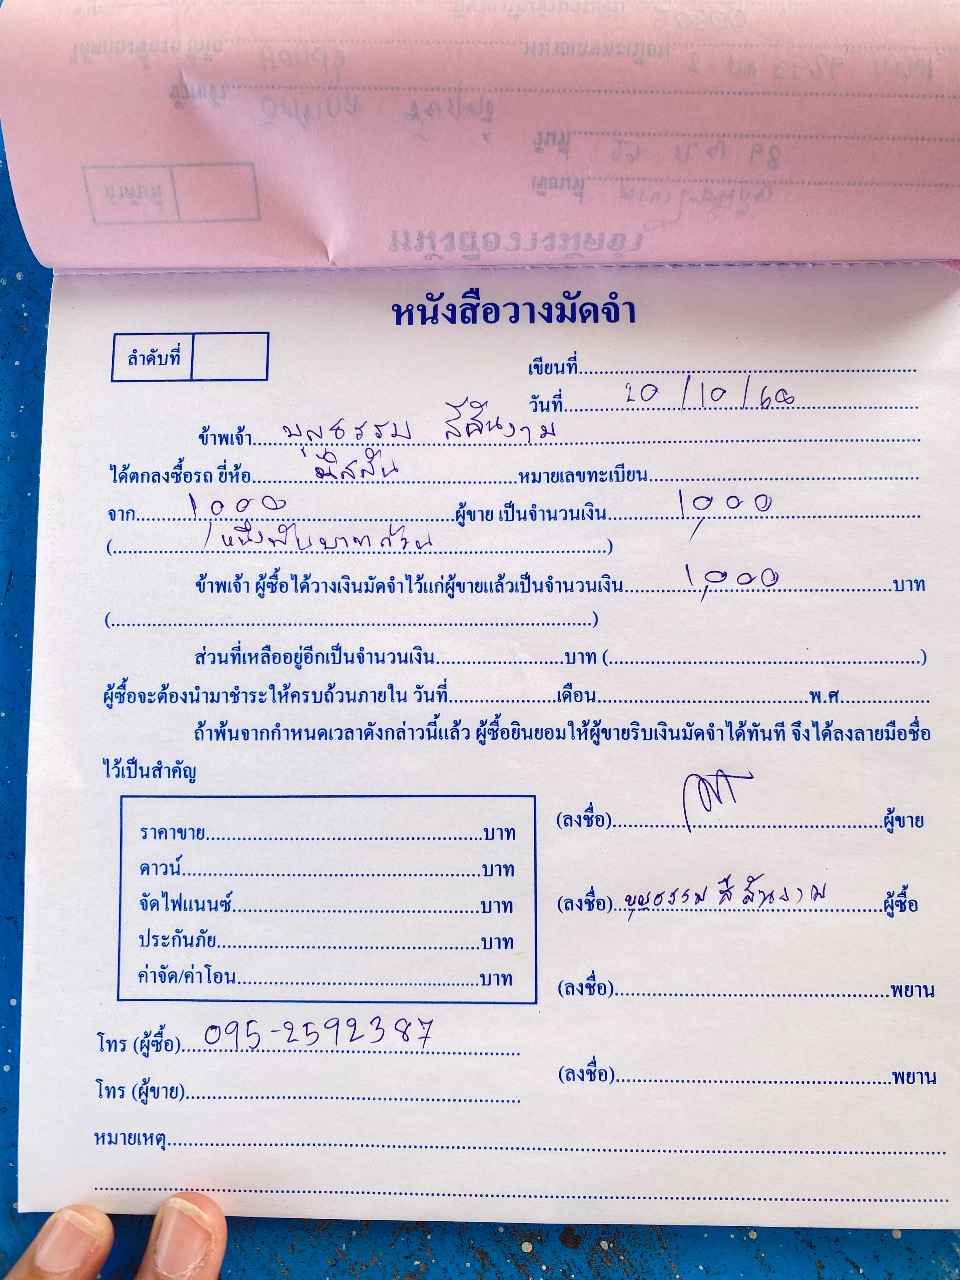 หนังสือวางมัดจำ
ลำดับที่
เขียนที่
วันที่ 20/10/66
ข้าพเจ้า บุญธรรม สีสันงาม
ได้ตกลงซื้อรถ ยี่ห้อ มิสสัน หมายเลขทะเบียน
จาก 1,000 ผู้ขาย เป็นจำนวนเงิน 1,000
(หนึ่งพันบาทถ้วน)
ข้าพเจ้า ผู้ซื้อได้วางเงินมัดจำไว้แก่ผู้ขายแล้วเป็นจำนวนเงิน 1,000 บาท
(
)
ส่วนที่เหลืออยู่อีกเป็นจำนวนเงิน บาท ( )
ผู้ซื้อจะต้องนำมาชำระให้ครบถ้วนภายใน วันที่ เดือน พ.ศ.
ถ้าพ้นจากกำหนดเวลาดังกล่าวนี้แล้ว ผู้ซื้อยินยอมให้ผู้ขายริบเงินมัดจำได้ทันที จึงได้ลงลายมือชื่อ
ไว้เป็นสำคัญ
ราคาขาย บาท
ดาวน์ บาท
จัดไฟแนนซ์ บาท
ประกันภัย บาท
ค่าจัด/ค่าโอน บาท
(ลงชื่อ) ผู้ขาย
(ลงชื่อ) บุญธรรม สีสันงาม ผู้ซื้อ
(ลงชื่อ) พยาน
(ลงชื่อ) พยาน
โทร (ผู้ซื้อ) 095-2592387
โทร (ผู้ขาย)
หมายเหตุ